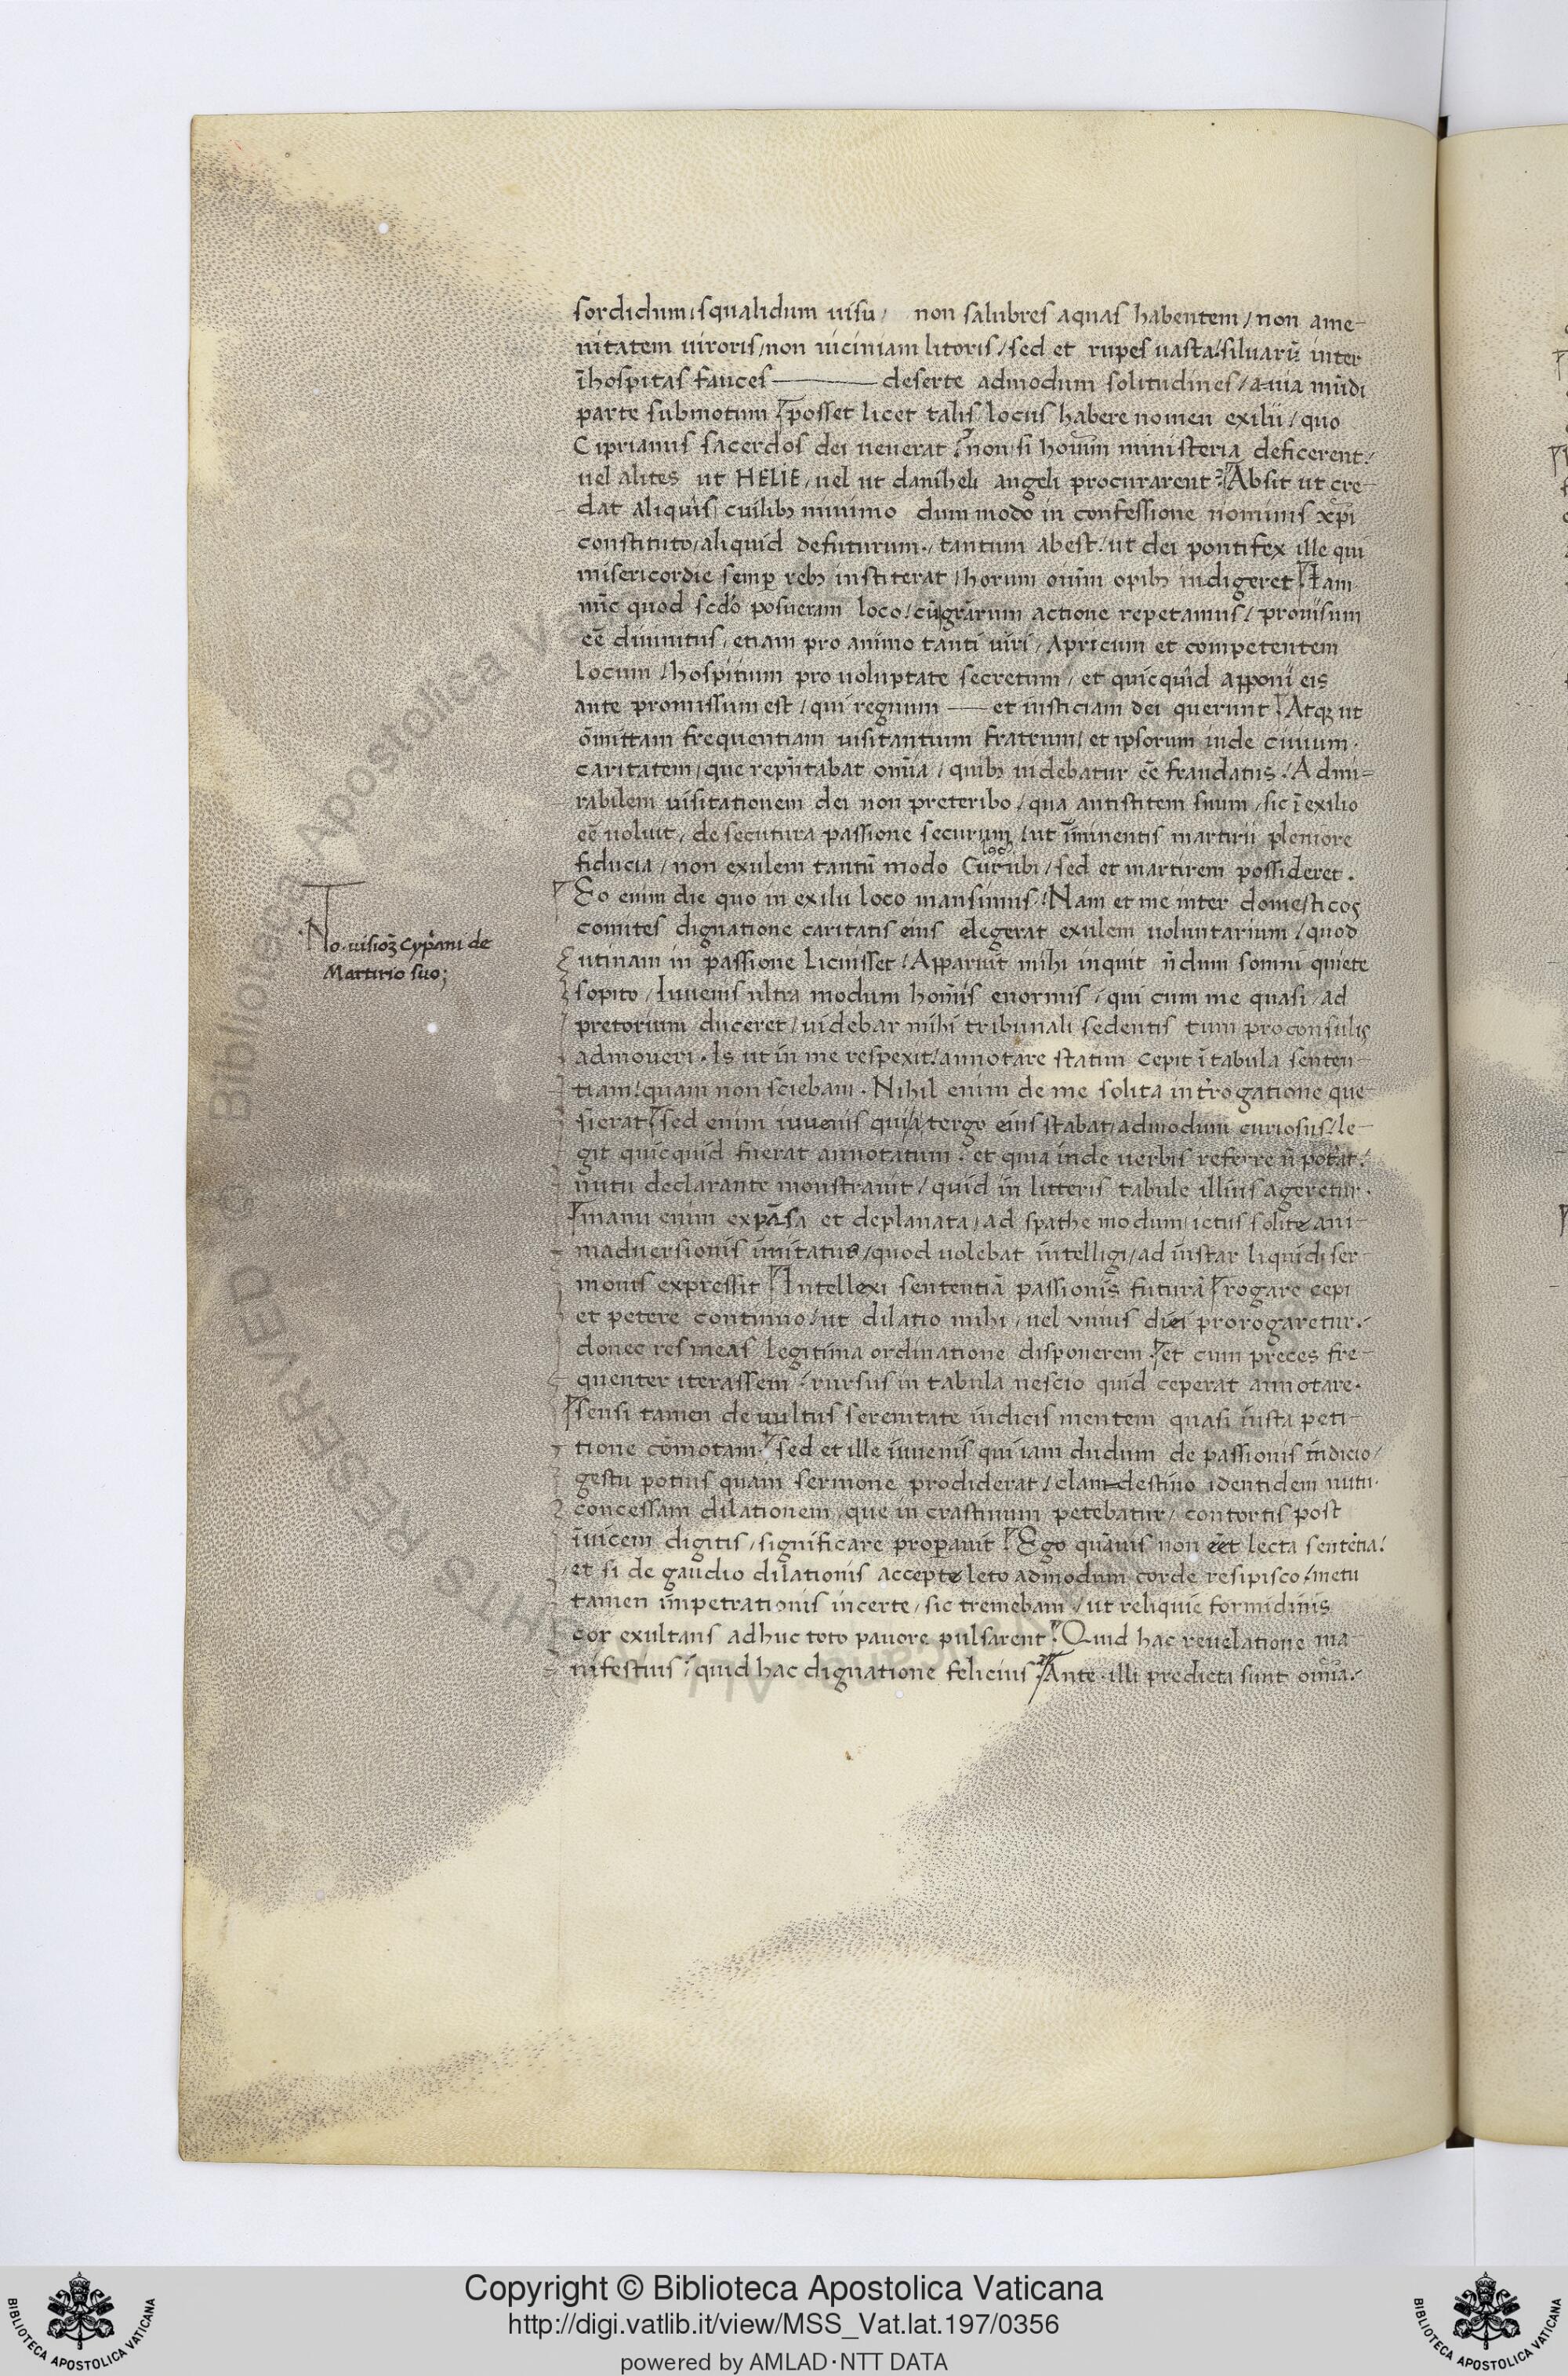 sordidum, squalidum uisu, non salubres aquas habentem, non ame-
nitatem uiroris, non uiciniam litoris, sed et rupes uasta, siluarū inter
īhospitas fauces deserte admodum solitudines, a-uia mūdi
parte submotum posset licet talis locus habere nomen exilii, quo
Ciprianus sacerdos dei uenerat non si hom̄in ministeria deficerent,
uel alites ut HELIE, uel ut daniheli angeli procurarent? Absit ut cre-
dat aliquis cuilibꝫ minimo dum modo in confessione nominis xp̄i
constituto, aliquid defuturum, tantum abest, ut dei pontifex ille qui
misericordie semꝑ rebꝫ institerat, horum oīum opibꝫ indigeret Iam
nūc quod scd̄o posueram loco, cū gr̄arum actione repetamus, prouisum
eē diuinitus, etiam pro animo tanti uiri, Apricum et competentem
locum, hospitium pro uoluptate secretum, et quicquid apponi eis
ante promissum est, qui regnum et iusticiam dei querunt Atqꝫ ut
omittam frequentiam uisitantium fratrum, et ipsorum inde ciuium.
caritatem, que repn̄tabat omīa, quibꝫ uidebatur eē fraudatus. Admi-
rabilem uisitationem dei non preteribo, qua antistitem suum, sic ī exilio
eē uoluit, de secutura passione securum, ut īminentis martirii pleniore
loc
fiducia, non exulem tantū modo Curubi, sed et martirem possideret.
Eo enim die quo in exilii loco mansimus, Nam et me inter domesticos
comites dignatione caritatis eius elegerat exulem uoluntarium, quod
.No. uisioꝫ cypani de
Martirio suo;
utinam in passione licuisset, Apparuit mihi inquit n̄dum somni quiete
sopito, Iuuenis ultra modum homīs enormis, qui cum me quasi, ad
pretorium duceret, uidebar mihi tribunali sedentis tum proconsulis
admoueri. Is ut in me respexit, annotare statim cepit ī tabula senten-
tiam, quam non sciebam. Nihil enim de me solita int̄rogatione que-
sierat, sed enim iuuenis qui a tergo eius stabat, admodum curiosus, le-
git quicquid fuerat annotatum. et quia inde uerbis referre n̄ pot̄at,
nutu declarante monstrauit, quid in litteris tabule illius ageretur.
manu enim expāsa et deplanata, ad spathe modum, ictus solite ani-
maduersionis imitatus, quod uolebat intelligi, ad instar liquidi ser-
monis expressit Intellexi sententiā passionis futurā rogare cepi
et petere continuo, ut dilatio mihi, uel unius diei prorogaretur.
donec res meas legitima ordinatione disponerem. et cum preces fre-
quenter iterassem, rursus in tabula nescio quid ceperat annotare.
sensi tamen de uultus serenitate iudicis mentem quasi iusta peti-
tione cōmotam. sed et ille iuuenis qui iam dudum de passionis indicio,
gestu potius quam sermone prodiderat, clam-destino identidem nutu.
concessam dilationem, que in crastinum petebatur, contortis post
īuicem digitis, significare properauit. Ego quāuis non eēt lecta sentētia,
et si de gaudio dilationis accepte leto admodum corde resipisco, metu
tamen impetrationis incerte, sic tremebam, ut reliquie formidinis
cor exultans adhuc toto pauore pulsarent. Quid hac reuelatione ma-
nifestius, quid hac dignatione felicius. Ante. illi predicta sunt omīa.
Copyright © Biblioteca Apostolica Vaticana
http://digi.vatlib.it/view/MSS_Vat.lat.197/0356
powered by AMLAD·NTT DATA
BIBLIOTECA APOSTOLICA VATICANA
BIBLIOTECA APOSTOLICA VATICANA